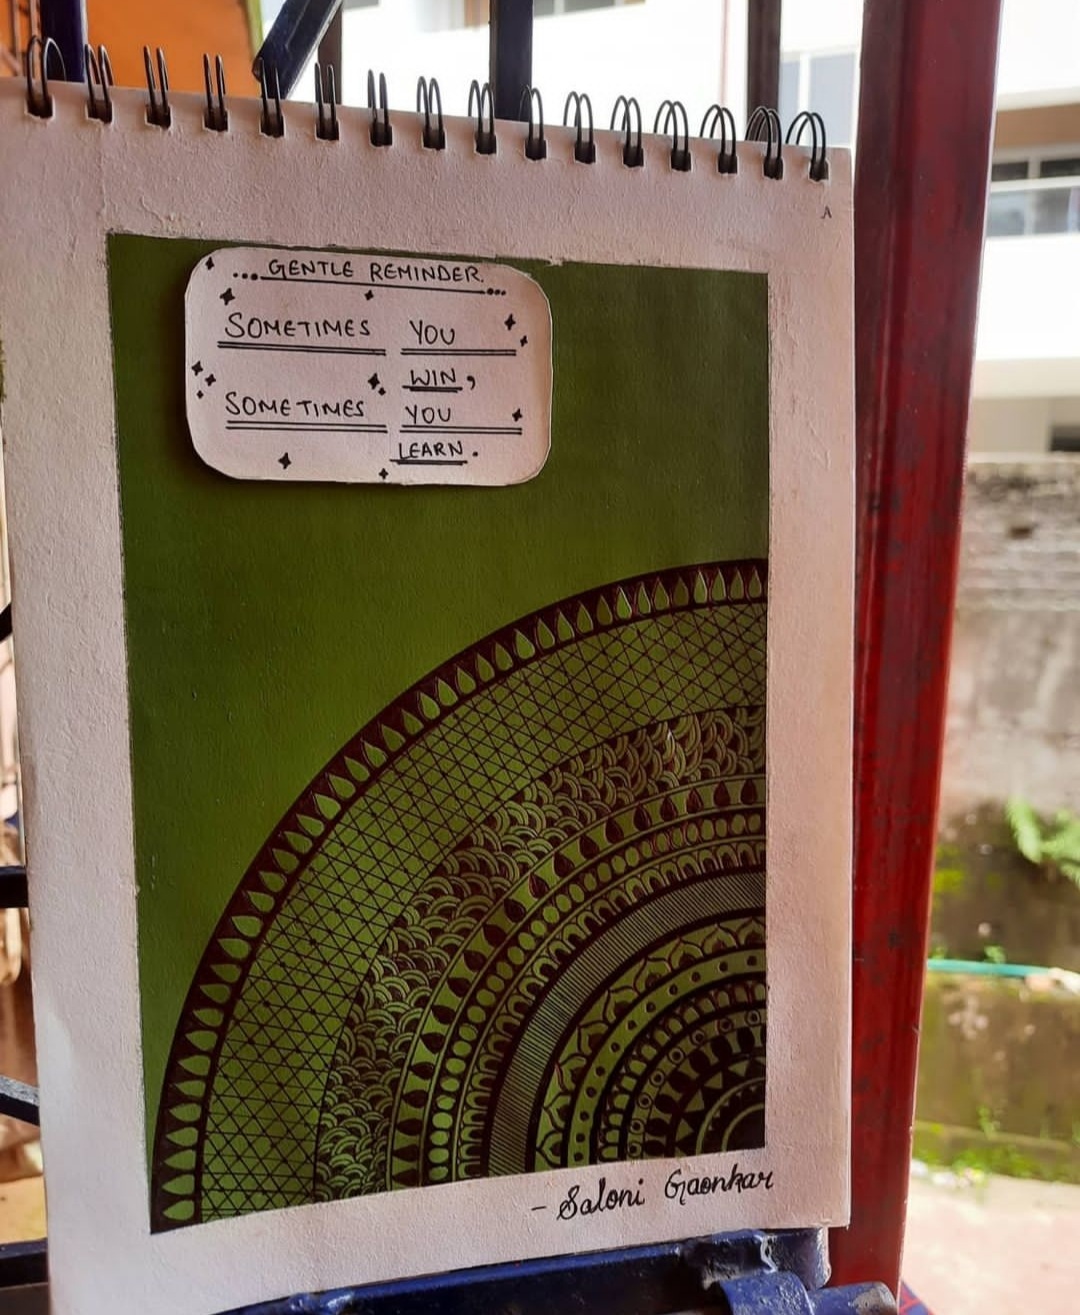 A
....GENTLE REMINDER....
SOMETIMES YOU
WIN,
SOMETIMES YOU
LEARN.
- Saloni Gaonkar